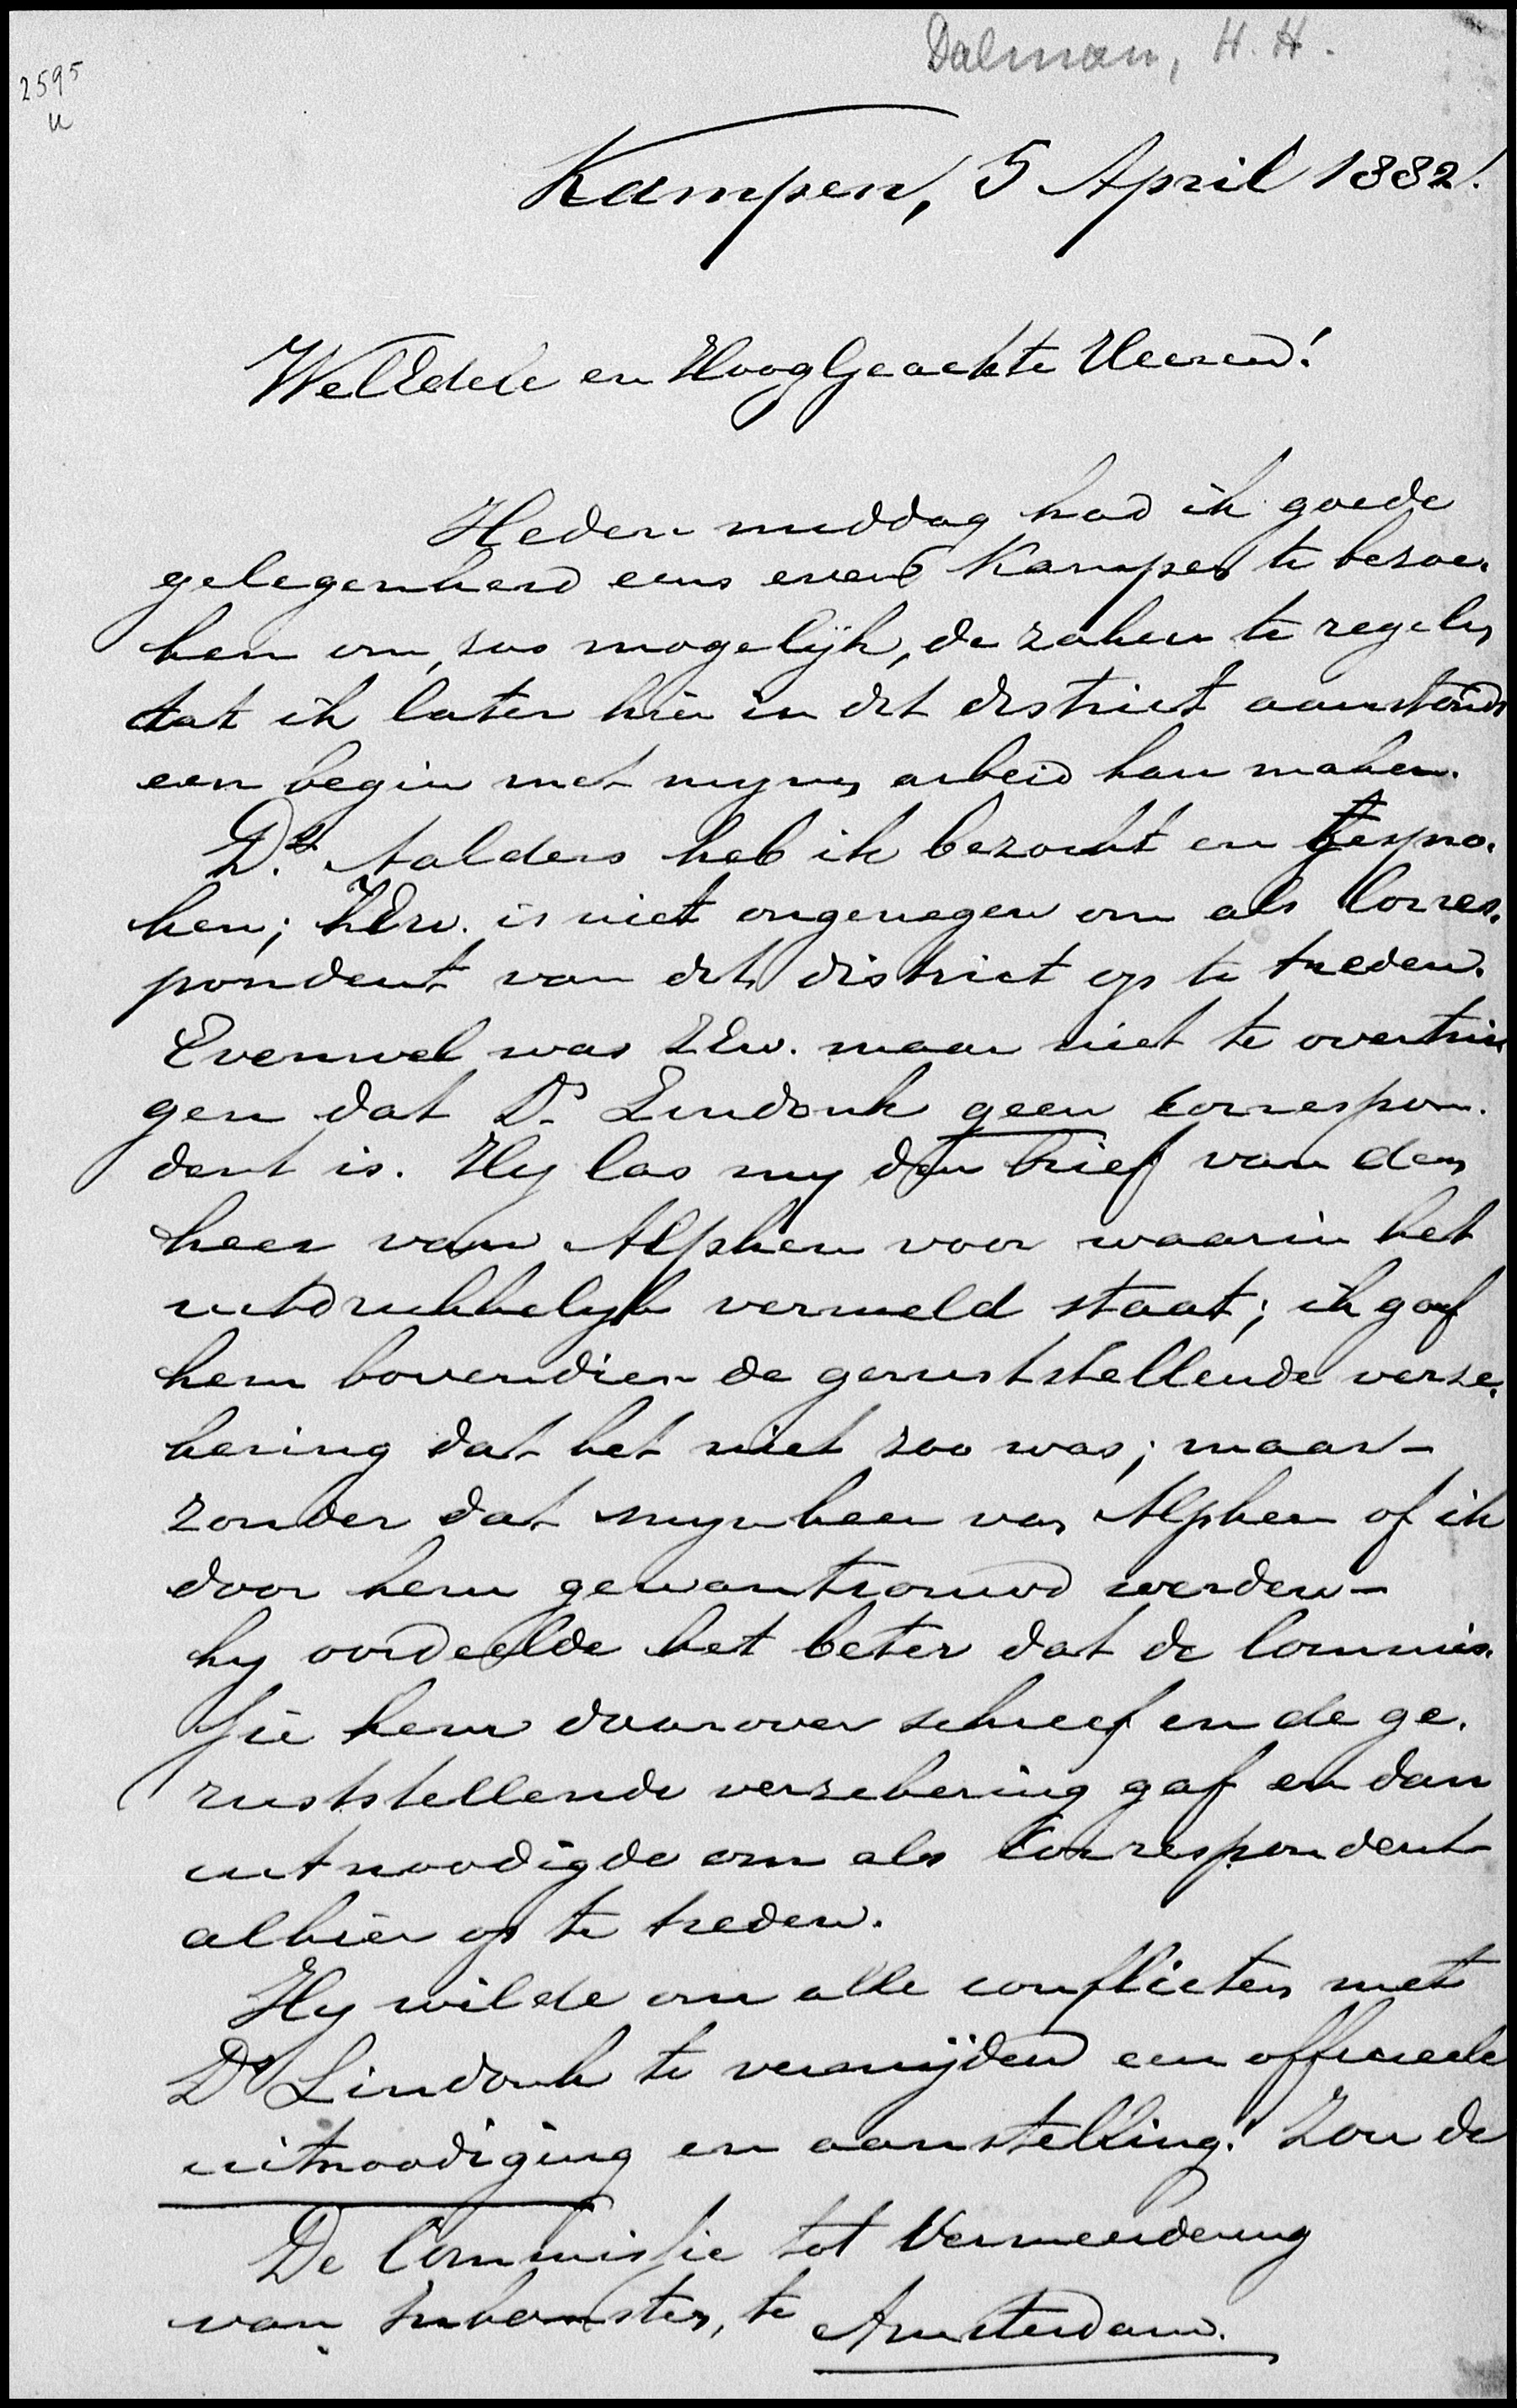 Dalman, H. H.
2595
u
Kampen, 5 April 1882!
WelEdele en HoogGeachte Heeren!
Heden middag had ik goede
gelegenheid eens even Kampen te bezoe-
ken om, zoo mogelijk, de zaken te regelen
dat ik later hier in dit district aanstonds
een begin met mijn arbeid kan maken.
Ds. Aalders heb ik bezocht en gespro-
ken; ZEw. is niet ongenegen om als Corres-
pondent van dit district op te treden.
Evenwel was ZEw. maar niet te overtui
gen dat Ds. Lindonk geen correspon-
dent is. Hy las my den brief van den
heer van Alphen voor waarin het
uitdrukkelyk vermeld staat; ik gaf
hem bovendien de geruststellende verze-
kering dat het niet zoo was; maar -
zonder dat mynheer van Alphen of ik
door hem gewantrouwd werden -
hy oordeelde het beter dat de Commis-
sie hem daarover schreef en de ge-
ruststellende verzekering gaf en dan
uitnoodigde om als Correspondent
alhier op te treden.
Hy wilde om alle conflicten met
Ds Lindonk te vermijden een officieele
uitnoodiging en aanstelling! Zou de
De Commissie tot Vermeerdering
van Inkomsten, te Amsterdam.